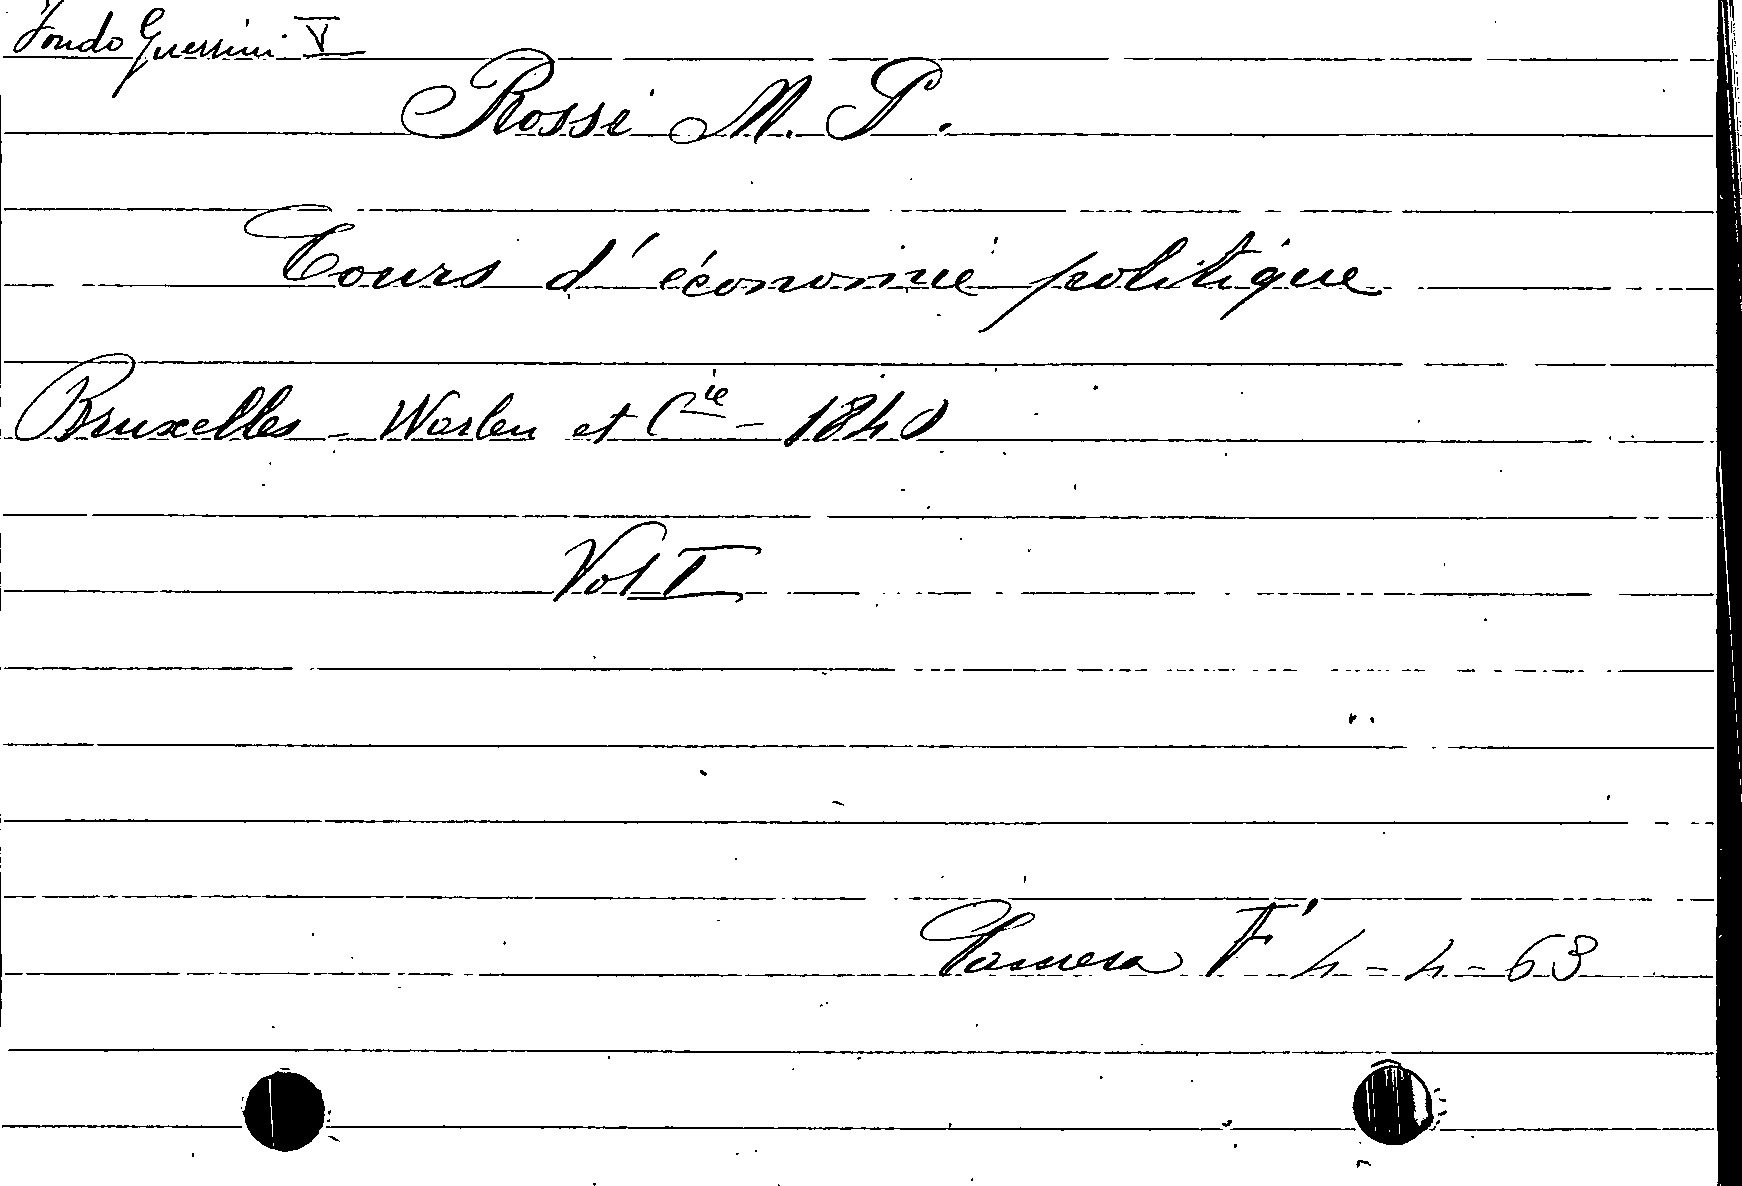 Fondo Guerrini V
Rossi M. P.
Cours d'économie politique
Bruxelles - Warlen et Cie - 1840
Vol I
Camera F' 4-4-63